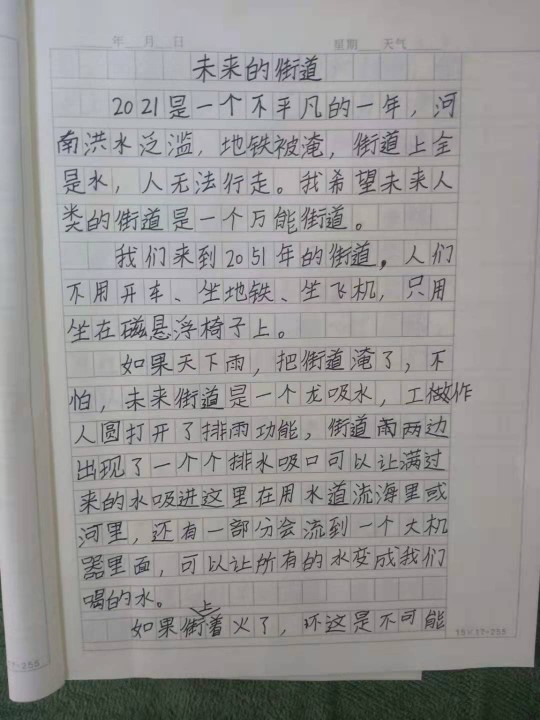 年 月 日 星期 天气
未来的街道
2021是一个不平凡的一年，河
南洪水泛滥，地铁被淹，街道上全
是水，人无法行走。我希望未来人
类的街道是一个万能街道。
我们来到2051年的街道，人们
不用开车、坐地铁、坐飞机，只用
坐在磁悬浮椅子上。
如果天下雨，把街道淹了，不
怕，未来街道是一个龙吸水，工做作
人圆打开了排雨功能，街道两两边
出现了一个个排水吸口可以让满过
来的水吸进这里在用水道流海里或
河里，还有一部分会流到一个大机
器里面，可以让所有的水变成我们
喝的水。
如果街上着火了，环这是不可能
15×17=255
7=255